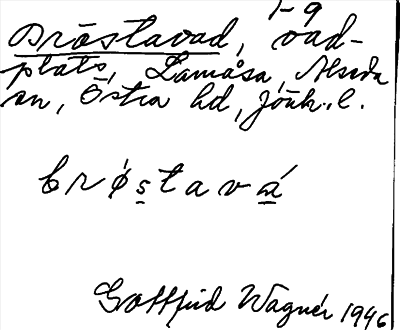 1-9
Dröstavad, vad-
plats, Lamåsa, Alseda
sn, Östra hd, Jönk. l.
brøstavá
Gottfrid Wagnér 1946